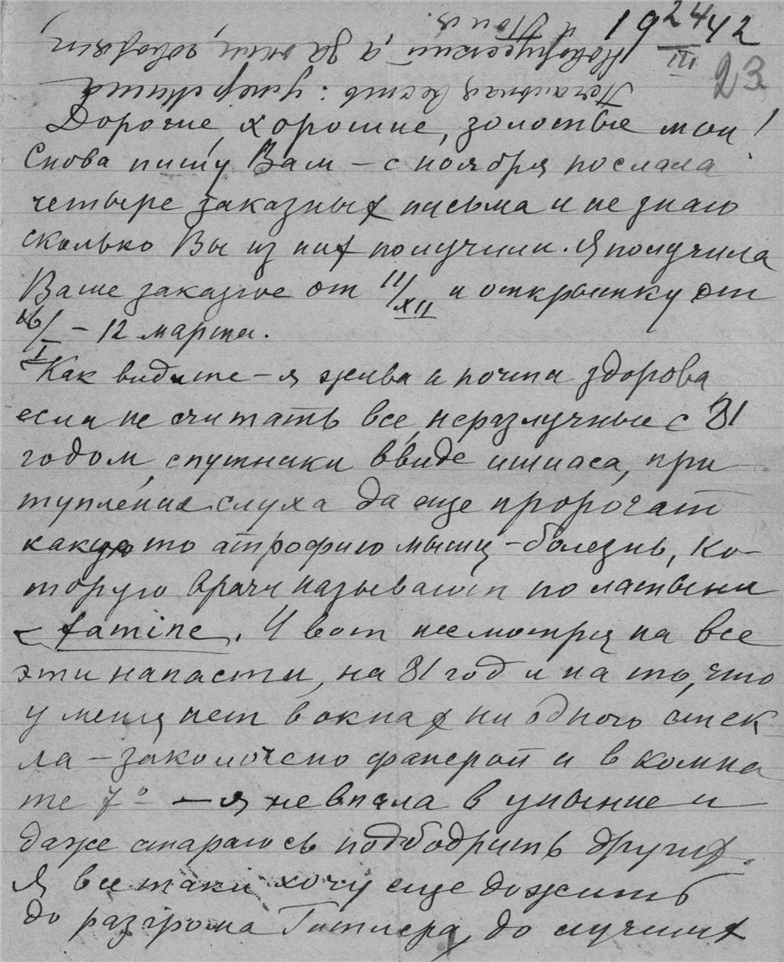 19 24/III 42
23
Печальная весть: умер Миша
Новорусский, а за ним, говорят,
и Таня.
Дорогие, хорошие, золотые мои!
Снова пишу Вам – с ноября послала
четыре заказных письма и не знаю
сколько Вы из них получили. Я получила
Ваше заказное от 11/XII и открытку от
26/I – 12 марта.
Как видите – я жива и почти здорова,
если не считать все, неразлучные с 81
годом, спутники ввиде ишиаса, при
тупления слуха да еще пророчат
какую то атрофию мышц – болезнь, ко-
торую врачи называют по латыни
famine. И вот несмотря на все
эти напасти, на 81 год и на то, что
у меня нет в окнах ни одного стек
ла – заколочено фанерой и в комна
те 7° – я не впала в уныние и
даже стараюсь подбодрить других.
Я все таки хочу еще дожить
до разгрома Гитлера, до лучших